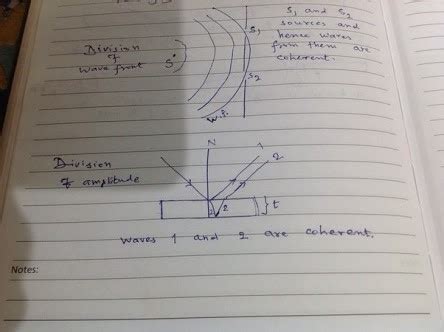 S₁ and S₂
sources and
hence waves
from them are
coherent.
Division
of
wave front
S
S₁
S₂
W.f.
Division
of amplitude
N
1
2
1
2
t
waves 1 and 2 are coherent.
Notes: